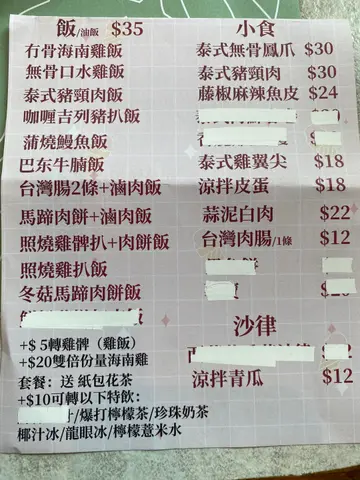 飯/油飯 $35
冇骨海南雞飯
無骨口水雞飯
泰式豬頸肉飯
咖喱吉列豬扒飯
蒲燒鰻魚飯
巴东牛腩飯
台灣腸2條+滷肉飯
馬蹄肉餅+滷肉飯
照燒雞髀扒+肉餅飯
照燒雞扒飯
冬菇馬蹄肉餅飯
飯
+$ 5轉雞髀（雞飯）
+$20雙倍份量海南雞
套餐：送 紙包花茶
+$10可轉以下特飲：
/爆打檸檬茶/珍珠奶茶
椰汁冰/龍眼冰/檸檬薏米水
小食
泰式無骨鳳爪 $30
泰式豬頸肉 $30
藤椒麻辣魚皮 $24
泰式雞翼尖 $18
涼拌皮蛋 $18
蒜泥白肉 $22
台灣肉腸/1條 $12
沙律
涼拌青瓜 $12